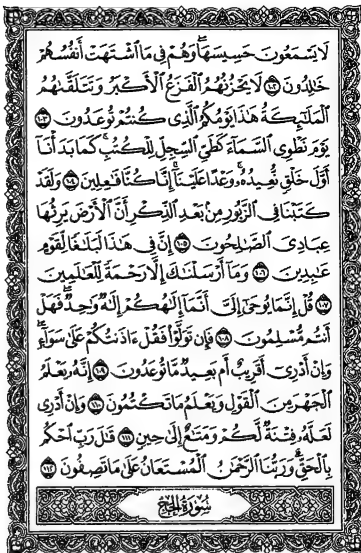 لَا يَسْمَعُونَ حَسِيسَهَا ۖ وَهُمْ فِي مَا اشْتَهَتْ أَنفُسُهُمْ
خَالِدُونَ ١٠٢ لَا يَحْزُنُهُمُ الْفَزَعُ الْأَكْبَرُ وَتَتَلَقَّاهُمُ
الْمَلَائِكَةُ هَٰذَا يَوْمُكُمُ الَّذِي كُنتُمْ تُوعَدُونَ ١٠٣
يَوْمَ نَطْوِي السَّمَاءَ كَطَيِّ السِّجِلِّ لِلْكُتُبِ ۚ كَمَا بَدَأْنَا
أَوَّلَ خَلْقٍ نُّعِيدُهُ ۚ وَعْدًا عَلَيْنَا ۚ إِنَّا كُنَّا فَاعِلِينَ ١٠٤ وَلَقَدْ
كَتَبْنَا فِي الزَّبُورِ مِن بَعْدِ الذِّكْرِ أَنَّ الْأَرْضَ يَرِثُهَا
عِبَادِيَ الصَّالِحُونَ ١٠٥ إِنَّ فِي هَٰذَا لَبَلَاغًا لِّقَوْمٍ
عَابِدِينَ ١٠٦ وَمَا أَرْسَلْنَاكَ إِلَّا رَحْمَةً لِّلْعَالَمِينَ
١٠٧ قُلْ إِنَّمَا يُوحَىٰ إِلَيَّ أَنَّمَا إِلَٰهُكُمْ إِلَٰهٌ وَاحِدٌ ۖ فَهَلْ
أَنتُم مُّسْلِمُونَ ١٠٨ فَإِن تَوَلَّوْا فَقُلْ آذَنتُكُمْ عَلَىٰ سَوَاءٍ ۖ
وَإِنْ أَدْرِي أَقَرِيبٌ أَم بَعِيدٌ مَّا تُوعَدُونَ ١٠٩ إِنَّهُ يَعْلَمُ
الْجَهْرَ مِنَ الْقَوْلِ وَيَعْلَمُ مَا تَكْتُمُونَ ١١٠ وَإِنْ أَدْرِي
لَعَلَّهُ فِتْنَةٌ لَّكُمْ وَمَتَاعٌ إِلَىٰ حِينٍ ١١١ قَالَ رَبِّ احْكُم
بِالْحَقِّ ۗ وَرَبُّنَا الرَّحْمَٰنُ الْمُسْتَعَانُ عَلَىٰ مَا تَصِفُونَ ١١٢
سُورَةُ الْحَجِّ